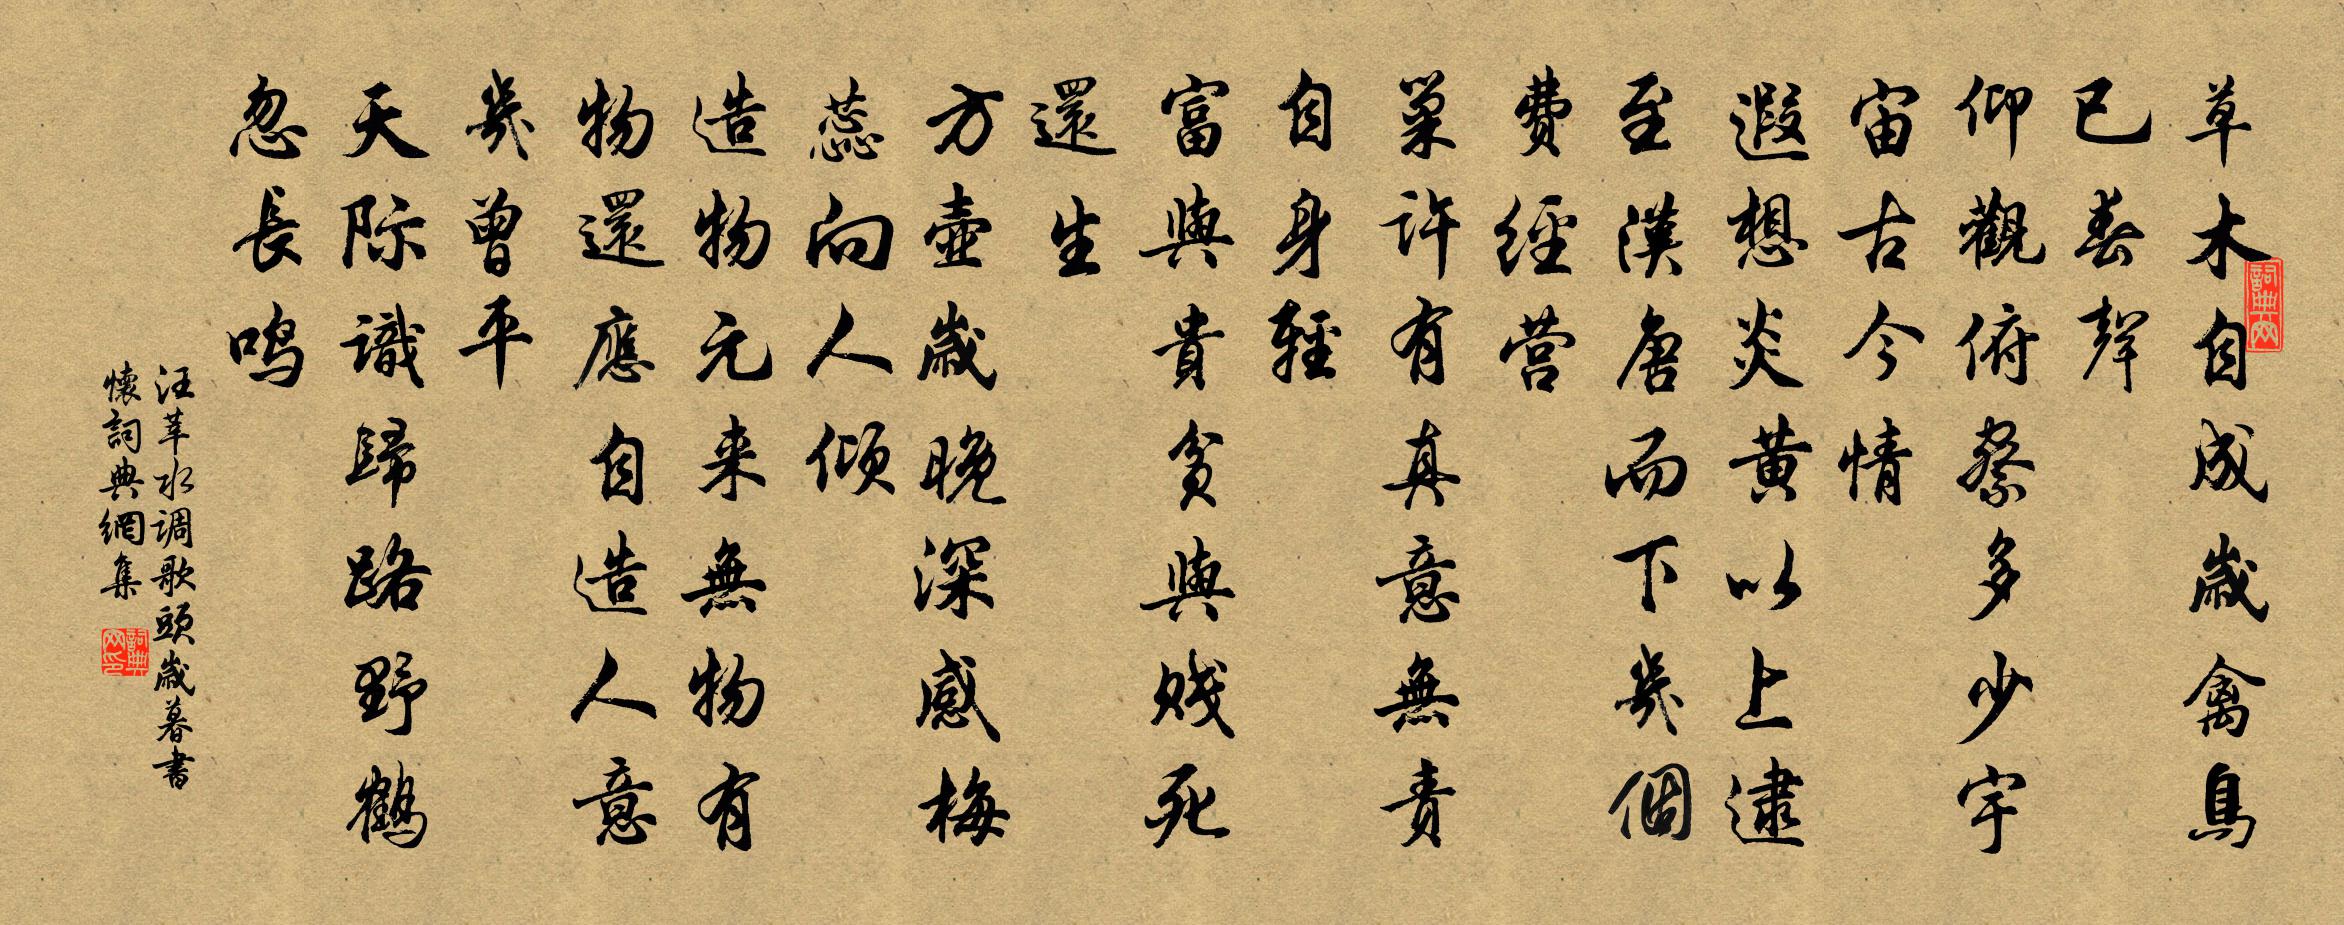 草木自成歲禽鳥
已春聲
仰觀俯察多少宇
宙古今情
遐想炎黄以上逮
至漢唐而下幾個
費經营
巢許有真意無責
自身輕
富與貴貧與贱死
還生
方壺歲晚深感梅
蕊向人倾
造物元来無物有
物還應自造人意
幾曾平
天际識歸路野鶴
忽長鸣
汪莘水调歌頭歲暮書
懷詞典網集
詞典网
詞典网印